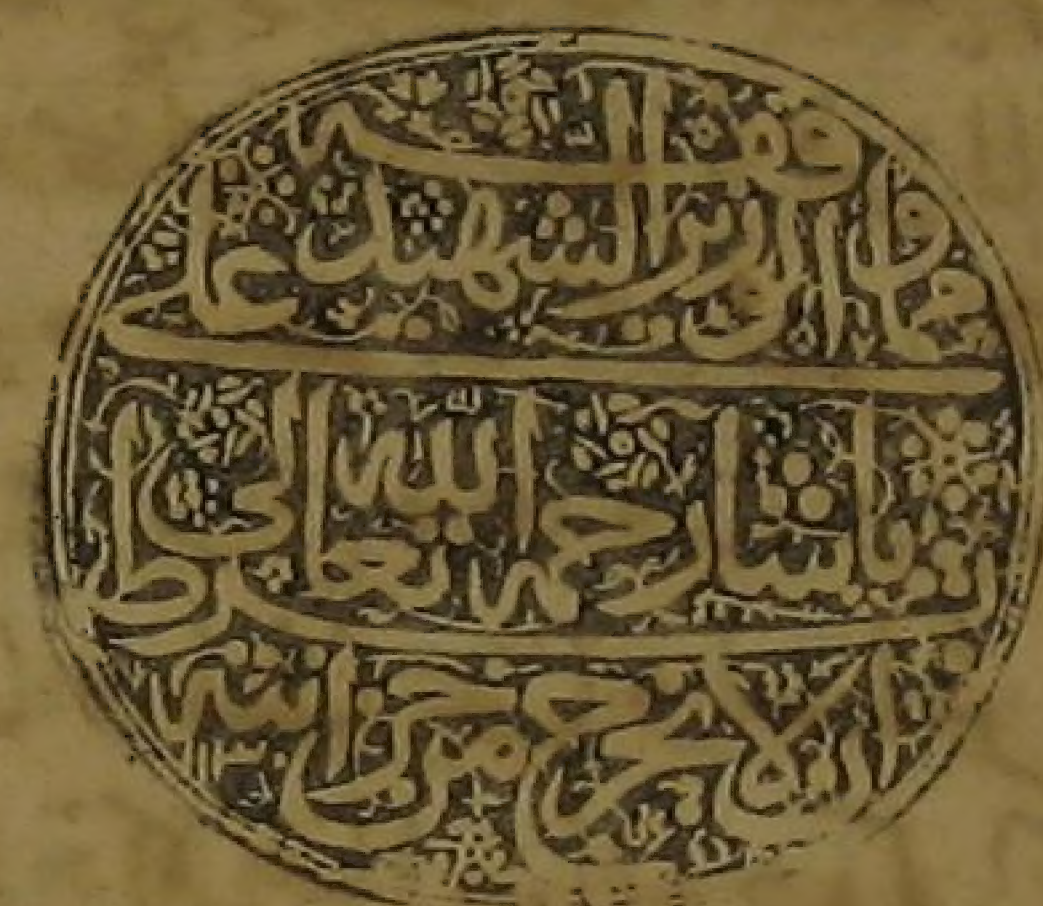 مما وقفه الوزير الشهيد علي
باشا رحمه الله تعالى بشرط
ان لا يخرج من خزانته
١١٣٠